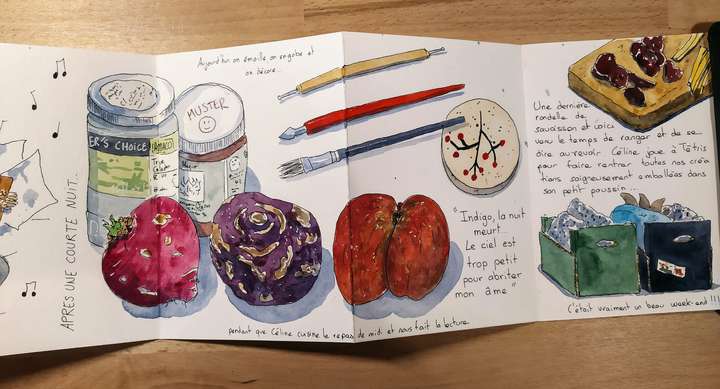 APRÈS UNE COURTE NUIT...
Aujourd'hui on émaille, on engobe et
on décore...
ER'S CHOICE
AMACO
MUSTER
"Indigo, la nuit
meurt...
Le ciel est
trop petit
pour abriter
mon âme"
pendant que Céline cuisine le repas de midi et nous fait la lecture
Une dernière
rondelle de
saucisson et voici
venu le temps de ranger et de se
dire au revoir. Céline joue à Tétris
pour faire rentrer toutes nos créa
tions soigneusement emballées dans
son petit poussein...
C'était vraiment un beau week-end !!!